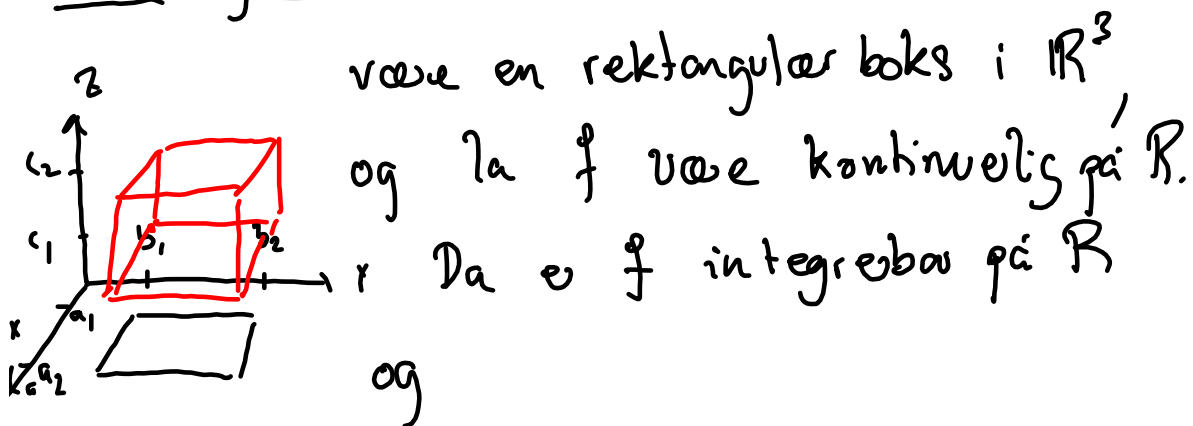 være en rektangulær boks i ℝ³
og la f være kontinuerlig på R.
Da er f integrerbar på R
og
z
c₂
c₁
b₁ b₂
y
a₁
x
a₂